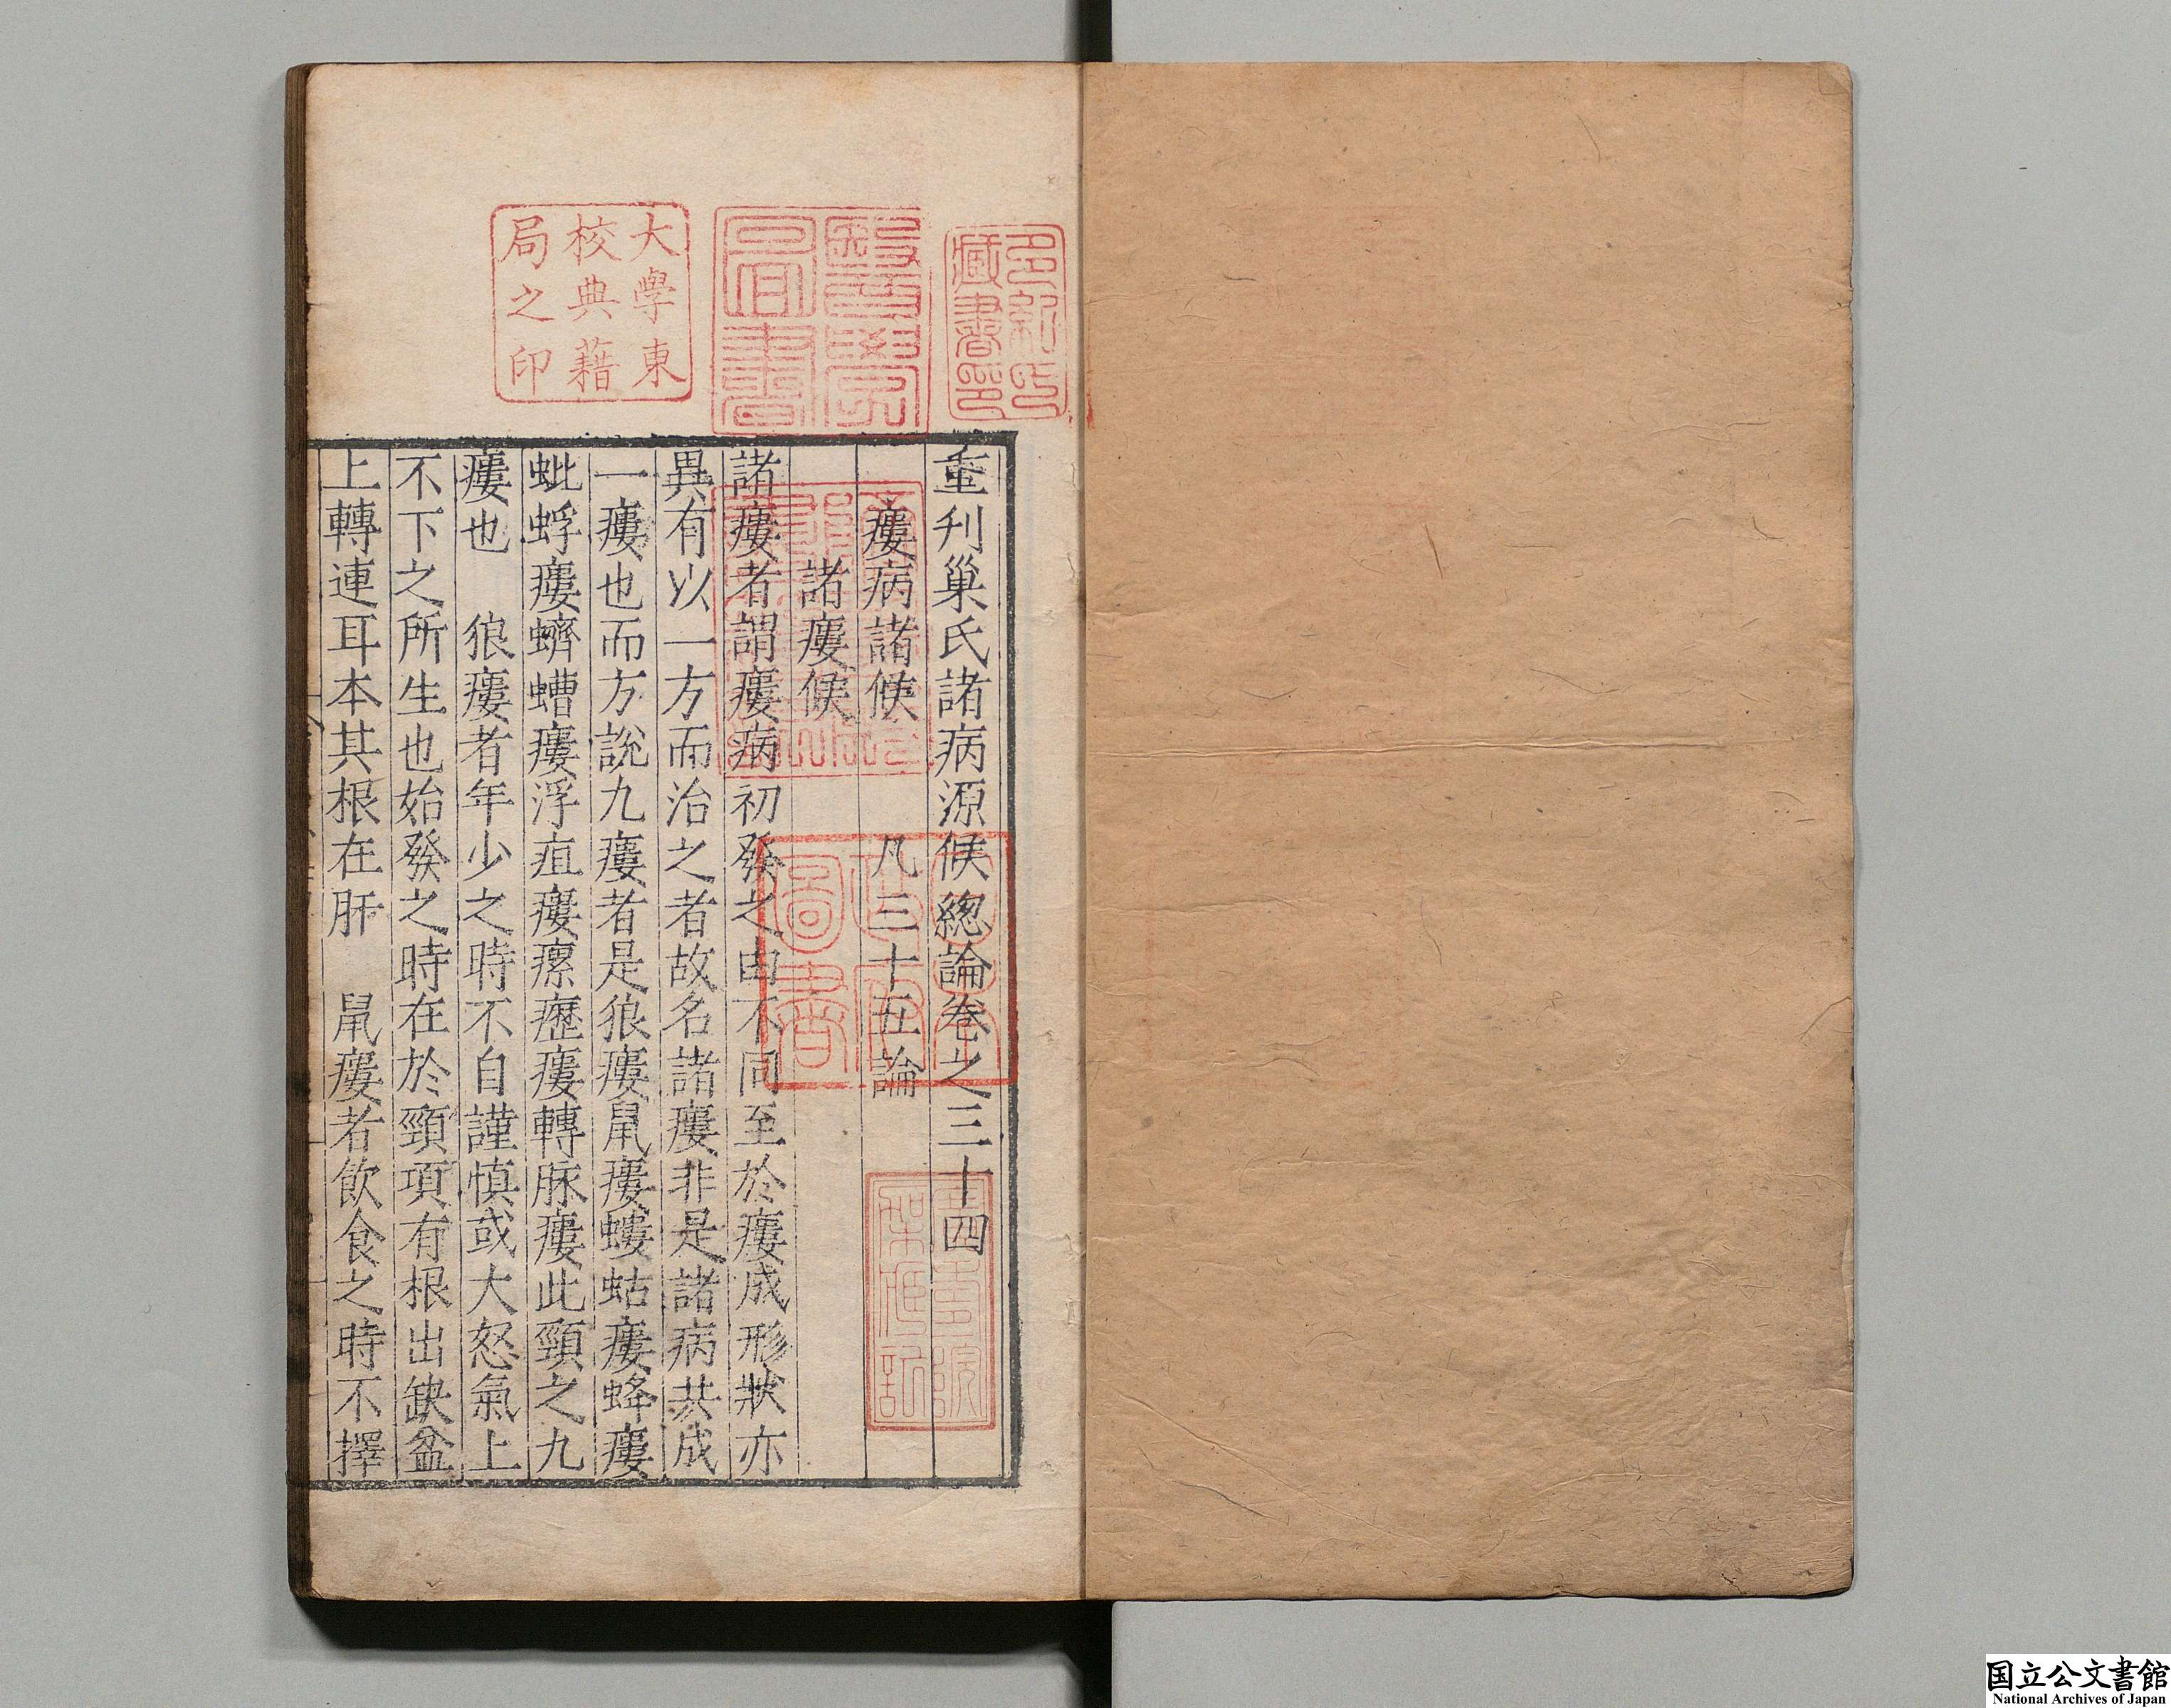 重刋巢氏諸病源候總論卷之三十四
瘻病諸候　凡三十五論
諸瘻候
諸瘻者謂瘻病初發之由不同至於瘻成形狀亦
異有以一方而治之者故名諸瘻非是諸病共成
一瘻也而方說九瘻者是狼瘻鼠瘻螻蛄瘻蜂瘻
蚍蜉瘻蠐螬瘻浮疽瘻瘰癧瘻轉脉瘻此頸之九
瘻也　狼瘻者年少之時不自謹慎或大怒氣上
不下之所生也始發之時在於頸項有根出缺盆
上轉連耳本其根在肝　鼠瘻者飲食之時不擇
多紀氏
藏書印
醫學
圖書
大學東
校典藉
局之印
圖書
国立公文書館
National Archives of Japan